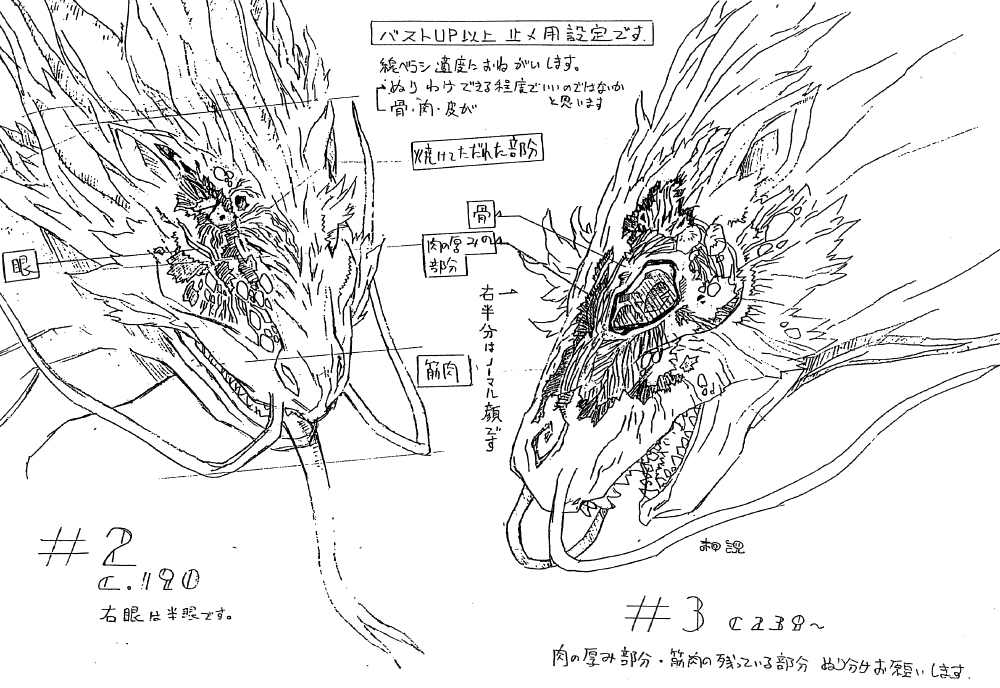 バストUP以上 止メ用設定です.
総ベラシ適度におねがいします。
・ぬりわけできる程度でいいのではないか
と思います
骨・肉・皮が
焼けてただれた部分
骨
肉の厚みの
部分
眼
右半分はノーマル顔です
筋肉
#2
c.190
右眼は半眼です。
#3 c238~
肉の厚み部分・筋肉の残っている部分 ぬり分けお願いします.